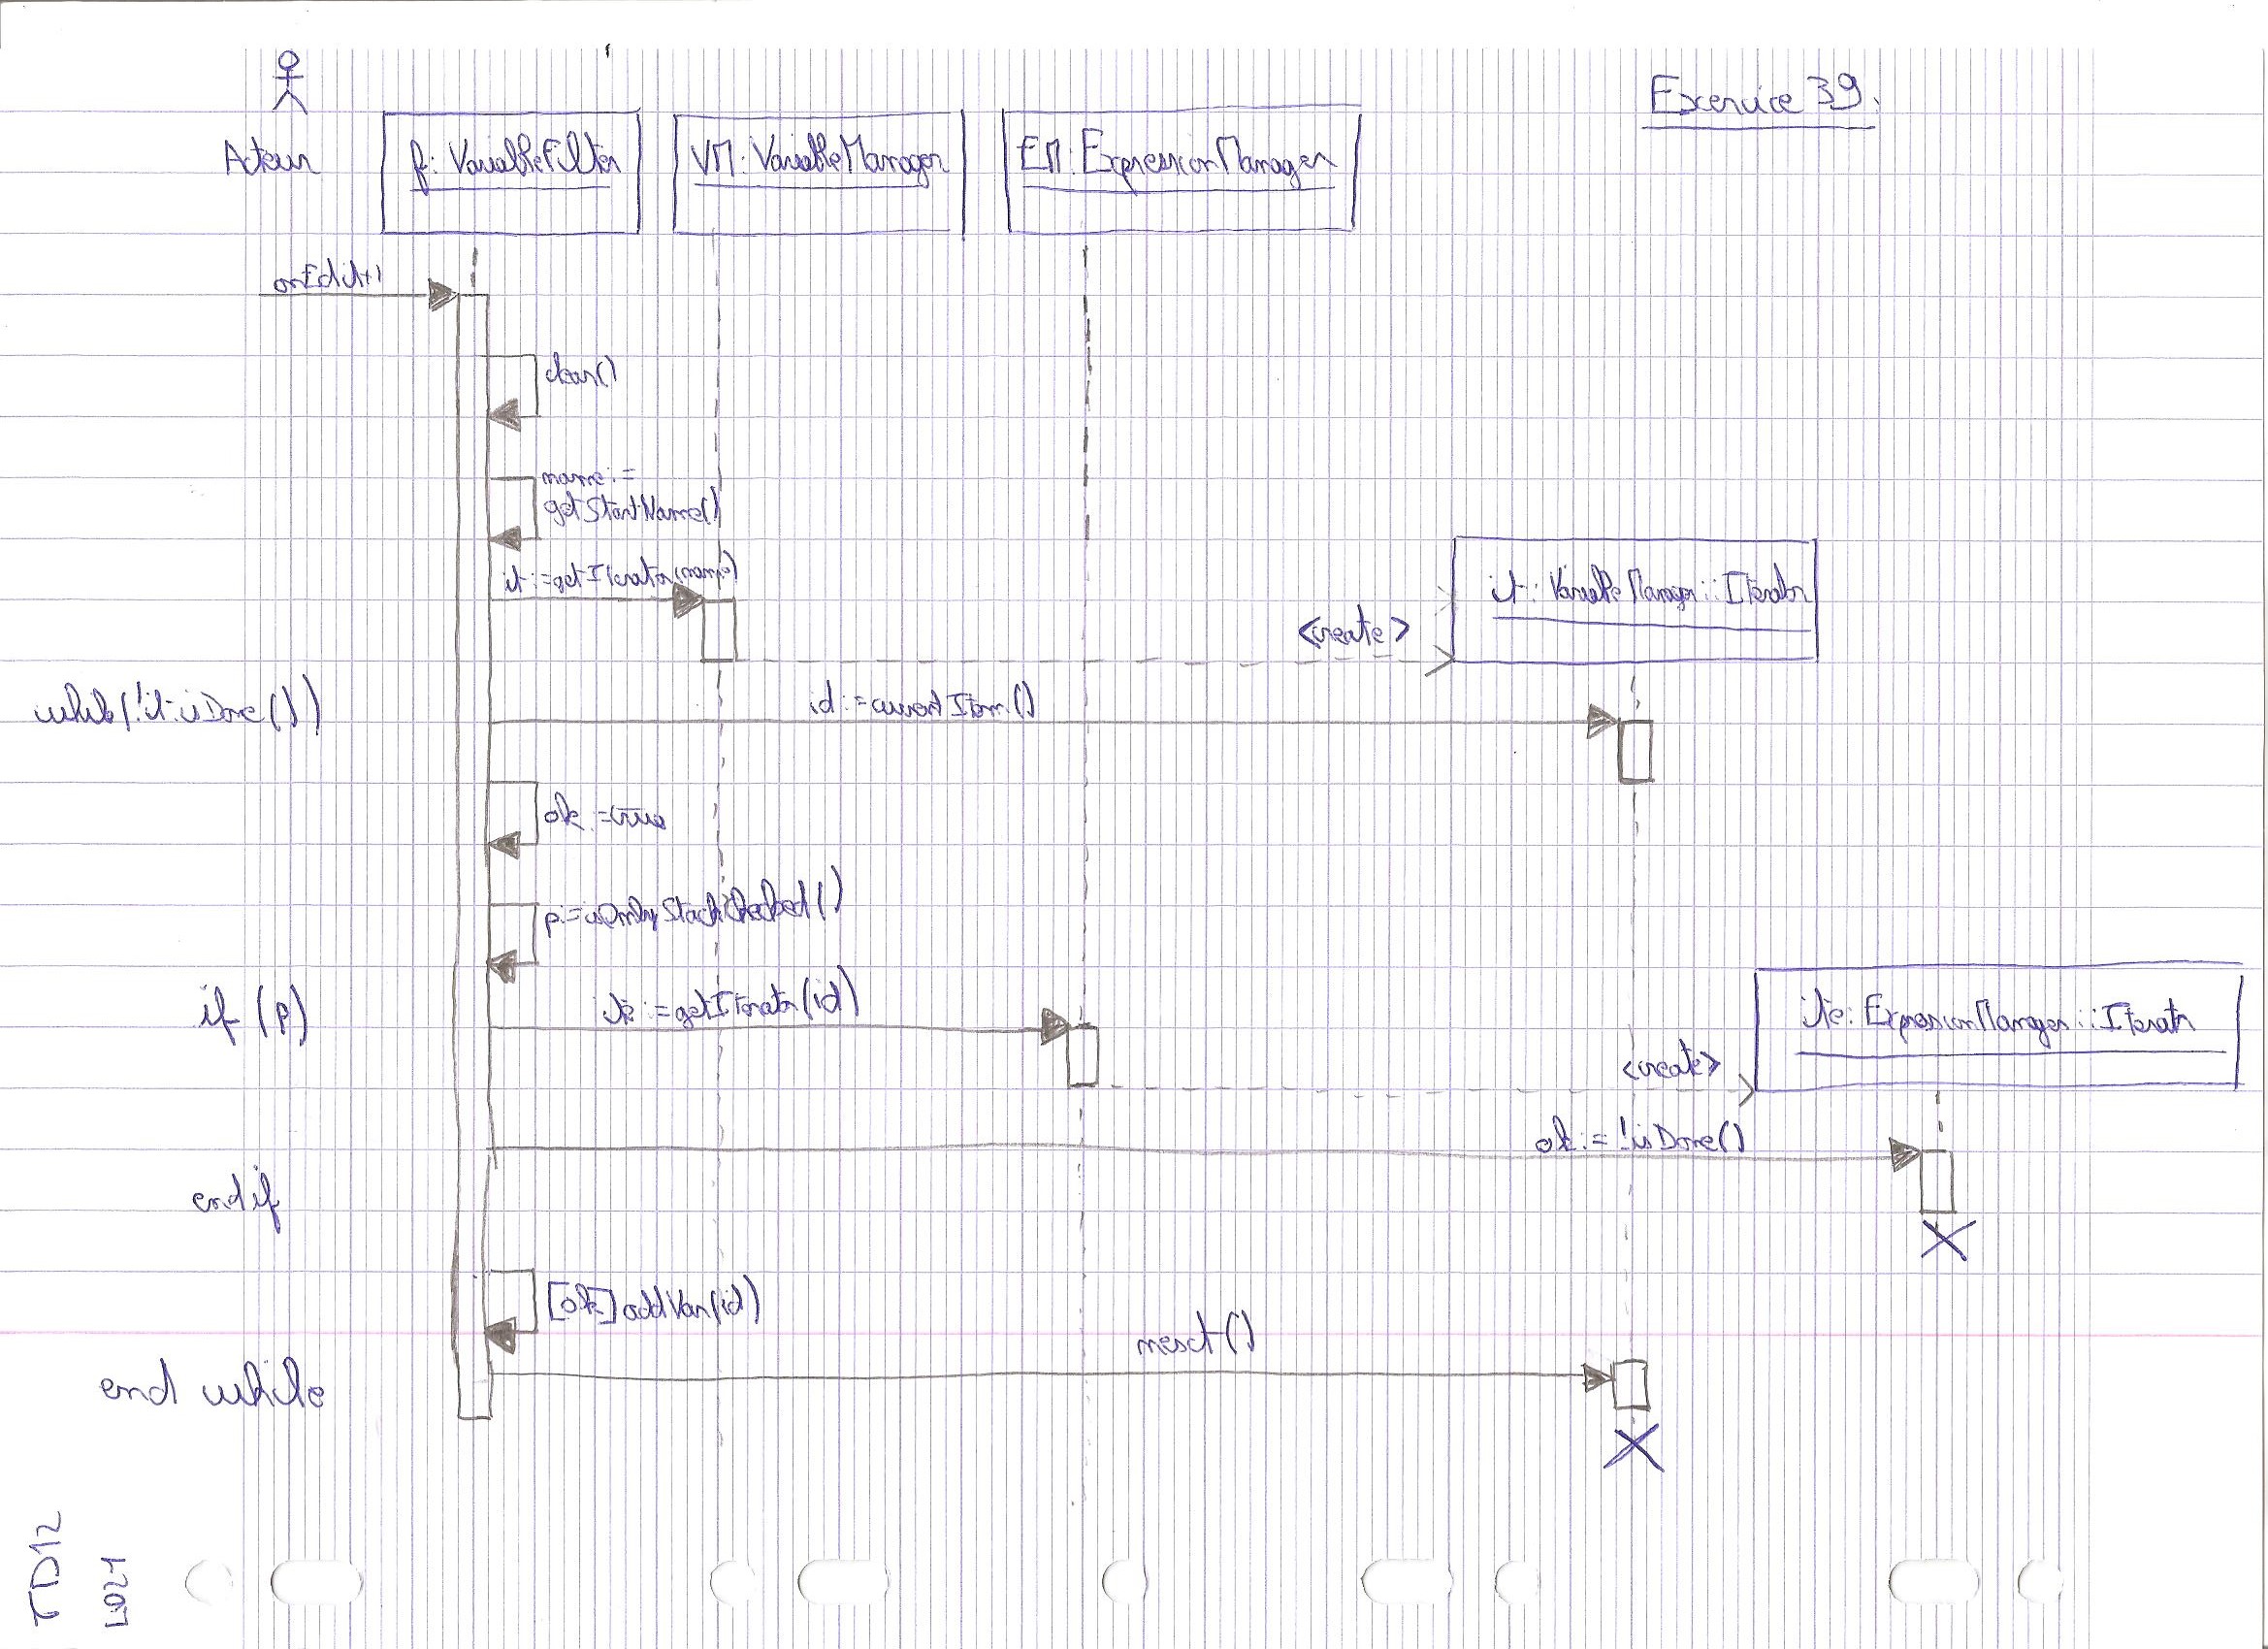 Exercice 39.
Acteur
f: VariableFilter
VM: VariableManager
EM: ExpressionManager
onEdit()
clear()
name :=
getStartName()
it :=getIterator(name)
it: VariableManager::Iterator
<create>
while(!it.isDone())
id :=currentItem()
ok :=true
p:=isOnlyStackChecked()
if (p)
ite :=getIterator(id)
ite: ExpressionManager::Iterator
<create>
ok := !isDone()
endif
[ok] addVar(id)
next()
end while
TD12
LO21